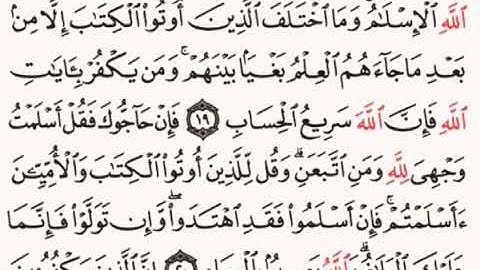 ٱللَّهِ ٱلْإِسْلَٰمُ وَمَا ٱخْتَلَفَ ٱلَّذِينَ أُوتُوا۟ ٱلْكِتَٰبَ إِلَّا مِنۢ
بَعْدِ مَا جَآءَهُمُ ٱلْعِلْمُ بَغْيًۢا بَيْنَهُمْ ۗ وَمَن يَكْفُرْ بِـَٔايَٰتِ
ٱللَّهِ فَإِنَّ ٱللَّهَ سَرِيعُ ٱلْحِسَابِ ١٩ فَإِنْ حَآجُّوكَ فَقُلْ أَسْلَمْتُ
وَجْهِىَ لِلَّهِ وَمَنِ ٱتَّبَعَنِ ۗ وَقُل لِّلَّذِينَ أُوتُوا۟ ٱلْكِتَٰبَ وَٱلْأُمِّيِّـۧنَ
ءَأَسْلَمْتُمْ ۚ فَإِنْ أَسْلَمُوا۟ فَقَدِ ٱهْتَدَوا۟ ۖ وَّإِن تَوَلَّوْا۟ فَإِنَّمَا